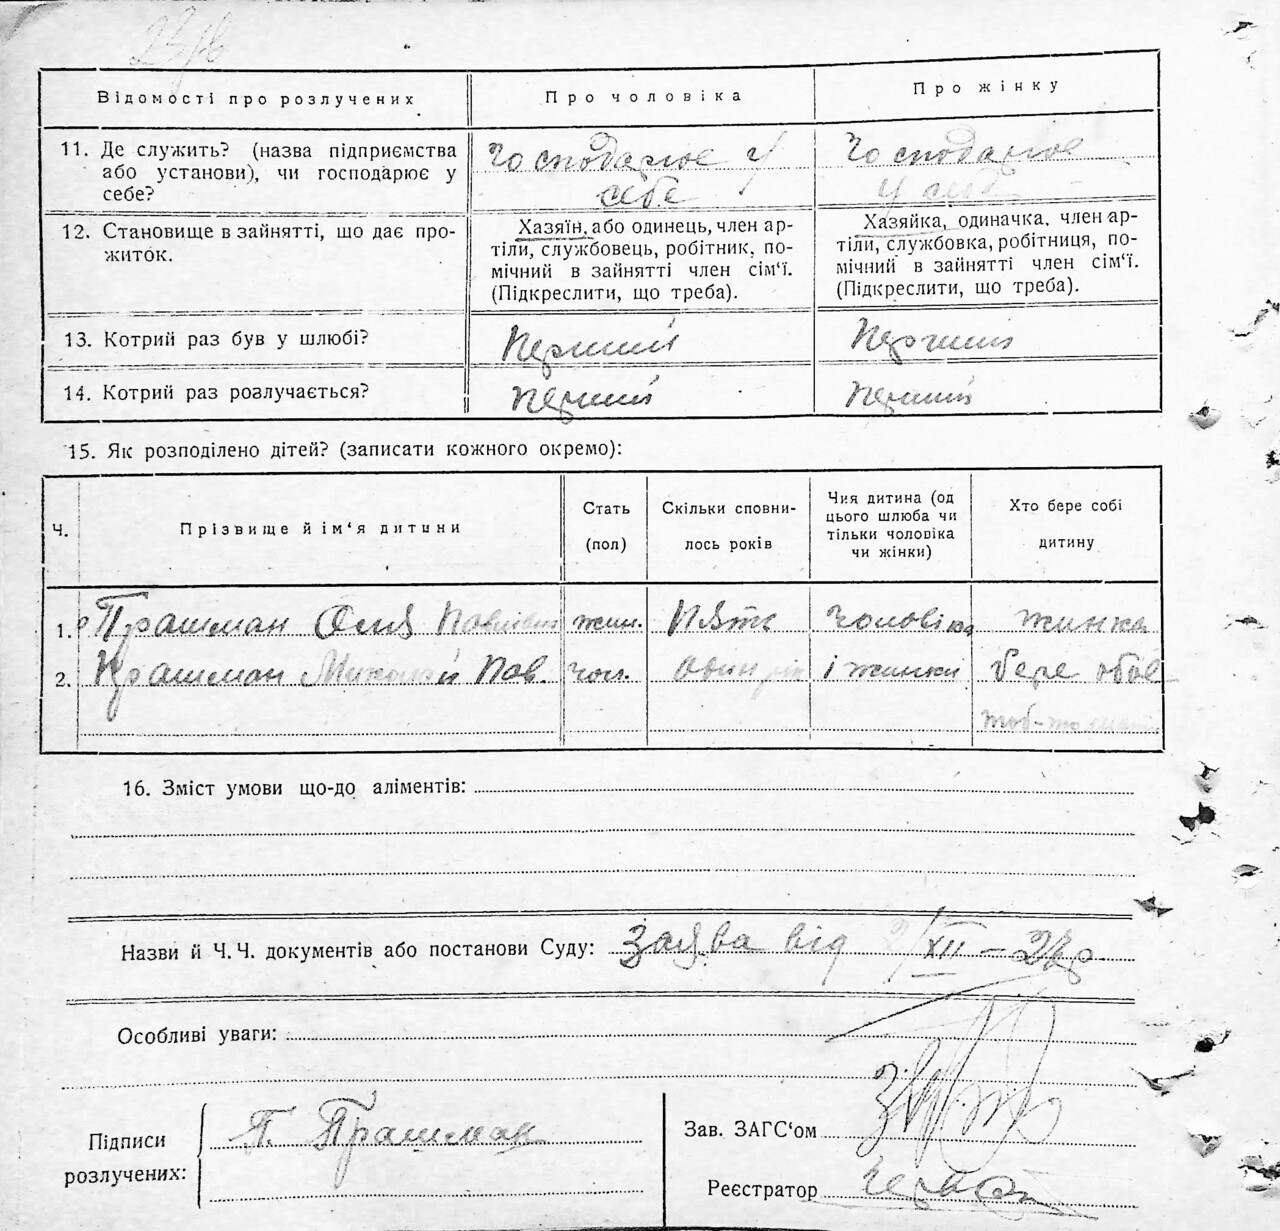 Відомості про розлучених
Про чоловіка
Про жінку
11. Де служить? (назва підприємства
або установи), чи господарює у
себе?
Господарює у
себе
Господарює
у себе
12. Становище в зайнятті, що дає про-
житок.
Хазяїн, або одинець, член ар-
тіли, службовець, робітник, по-
мічний в зайнятті член сім‘ї.
(Підкреслити, що треба).
Хазяйка, одиначка, член ар-
тіли, службовка, робітниця, по-
мічний в зайнятті член сім‘ї.
(Підкреслити, що треба).
13. Котрий раз був у шлюбі?
Перший
Перший
14. Котрий раз розлучається?
Перший
Перший
15. Як розподілено дітей? (записати кожного окремо):
Ч.
Прізвище й ім‘я дитини
Стать
(пол)
Скільки сповни-
лось років
Чия дитина (од
цього шлюба чи
тільки чоловіка
чи жінки)
Хто бере собі
дитину
1. Прашман Оля Павлівна жин. Пять чоловіка жинка
2. Прашман Миколай Пав. чол. один рік і жинки бере обоє
16. Зміст умови що-до аліментів:
Назви й Ч. Ч. документів або постанови Суду: Заява від /XII –
Особливі уваги:
Підписи
розлучених:
П. Прашман
Зав. ЗАГС‘ом
Реєстратор